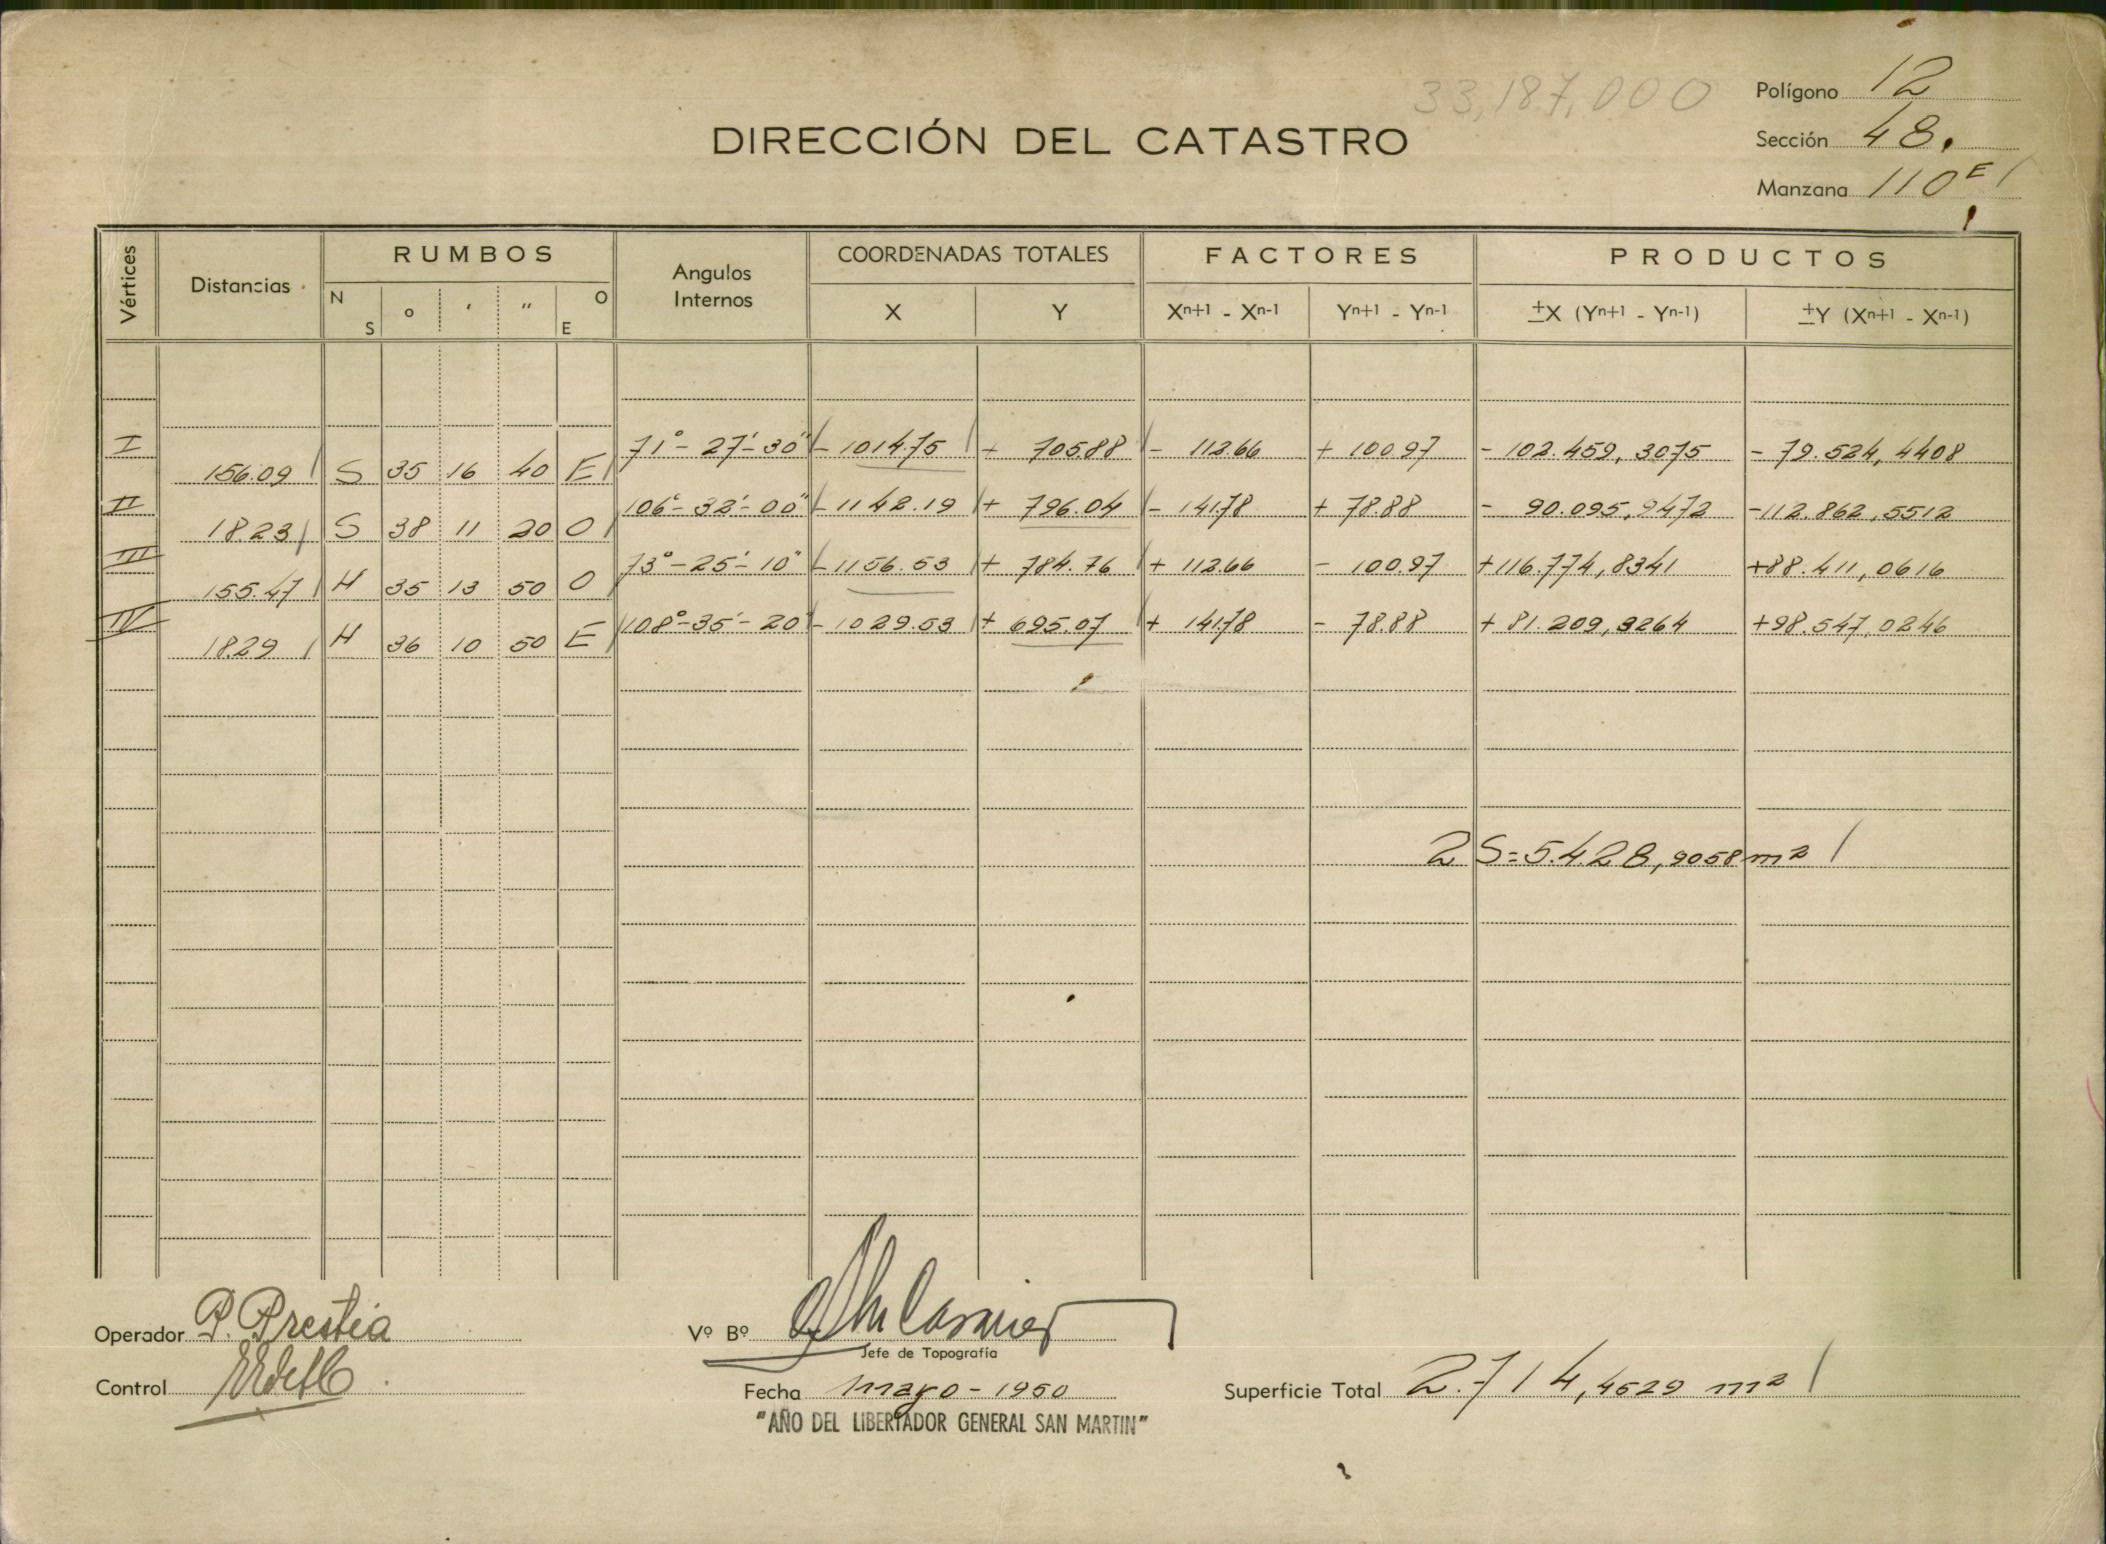 33,187,000
Polígono 12
DIRECCIÓN DEL CATASTRO
Sección 48.
Manzana 110E
Vértices
Distancias
RUMBOS
N S ° ' " O E
Angulos Internos
COORDENADAS TOTALES
X Y
FACTORES
Xn+1 - Xn-1 Yn+1 - Yn-1
PRODUCTOS
±X (Yn+1 - Yn-1) ±Y (Xn+1 - Xn-1)
I 71°-27'-30" -1014.75 + 705.88 - 112.66 + 100.97 - 102.459,3075 - 79.524,4408
156.09 S 35 16 40 E
II 106°-32'-00" -1142.19 + 796.04 - 141.78 + 78.88 - 90.095,9472 -112.862,5512
18.23 S 38 11 20 O
III 73°-25'-10" -1156.53 + 784.76 + 112.66 - 100.97 +116.774,8341 +88.411,0616
155.47 N 35 13 50 O
IV 108°-35'-20" -1029.53 + 695.07 + 141.78 - 78.88 + 81.209,3264 +98.547,0246
18.29 N 36 10 50 E
2 S=5.428,9058 m2
Operador P. Prestia
Vº Bº
Jefe de Topografía
Control
Fecha mayo-1950
Superficie Total 2.714,4529 m2
"AÑO DEL LIBERTADOR GENERAL SAN MARTIN"